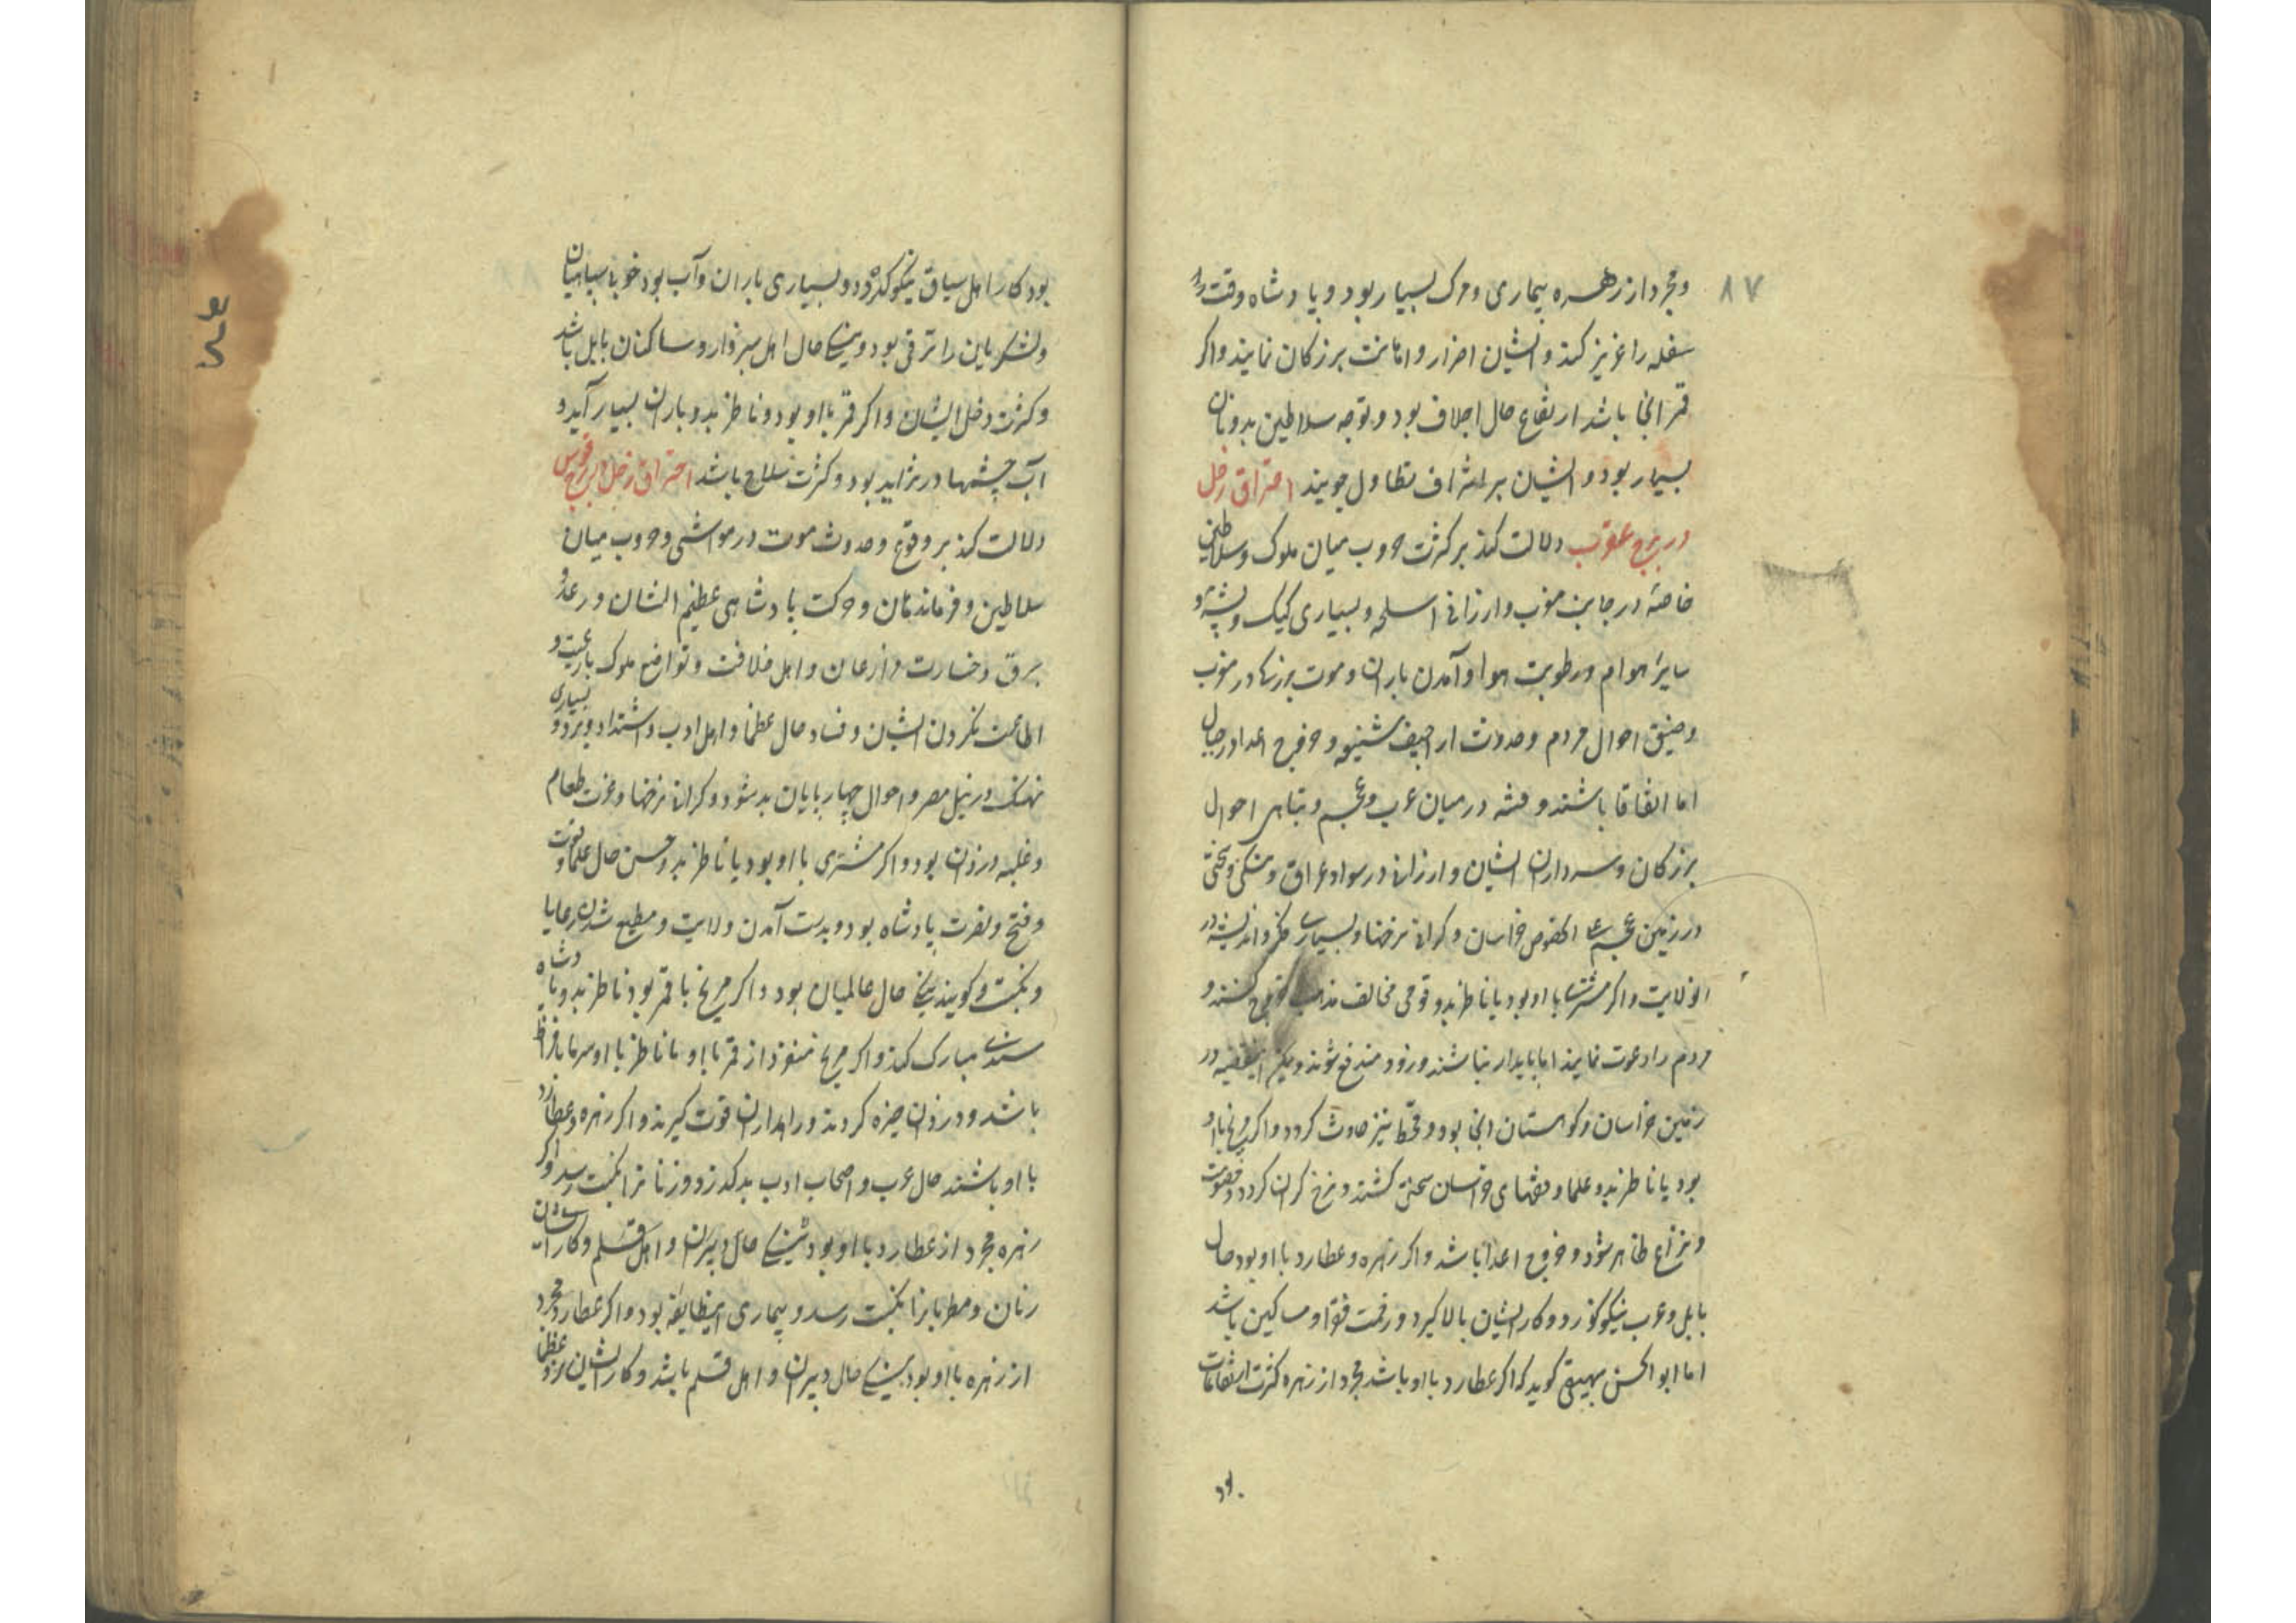 ۸۷
و مجرد از زهره بیماری و مرک بسیار بود و پادشاه وقت
سفله را عزیز کند و ایشان اضرار و اهانت بزرکان نمایند و اکر
قمر انجا باشد ارتفاع حال اجلاف بود و توجه سلاطین بدونان
بسیار بود و ایشان بر اشراف تطاول جویند احتراق زحل
در برج عقرب دلالت کند بر کثرت حروب میان ملوک و سلاطین
خاصّه در جانب مغرب و ارزانی اسلحه و بسیاری کیک و پشه و
سایر هوام و رطوبت هوا و آمدن باران و موت بزرکان در مغرب
و ضیق احوال مردم و حدوث اراجیف شنیعه و خروج اعدا در جبال
اما اتفاقا باشند و فتنه در میان عرب و عجم و تباهی احوال
بزرکان و سرداران ایشان و ارزانی در سواد عراق و تنکی و سختی
در زمین عجم علی الخصوص خراسان و کرانی نرخها و بسیاری فکر و اندیشه در
انولایت و اکر مشتری با او بود یا ناظر بدو قومی مخالف مذهب خروج کنند و
مردم را دعوت نمایند اما پایدار نباشند و زود مندفع شوند و اینقضیه در
زمین خراسان و کوهستان انجا بود و قحط نیز حادث کردد و اکر مریخ با او
بود یا ناظر بدو علما و فقهای خراسان سختی کشند و نرخ کران کردد و خصومت
و نزاع ظاهر شود و خروج اعدا باشد و اکر زهره و عطارد با او بود حال
بابل و عرب نیکو کذرد و کار ایشان بالا کیرد و زحمت فقرا و مساکین باشد
اما ابوالحسن بیهقی کوید که اکر عطارد با او باشد مجرد از زهره کثرت ارتفاعات
بود
بود کار اهل سیاق نیکو کذرد و بسیاری باران و آب بود خوبا سپاهیان
و لشکریان را ترقی بود و نیکی حال اهل سبزوار و ساکنان بابل باشد
و کثرت دخل ایشان و اکر قمر با او بود و ناظر بدو باران بسیار آید و
آب چشمها در تزاید بود و کثرت سلاح باشد احتراق زحل در برج قوس
دلالت کند بر وقوع و حدوث موت در مواشی و حروب میان
سلاطین و فرماندهان و حرکت پادشاهی عظیم الشان و رعد و
برق و خسارت مزارعان و اهل فلاحت و تواضع ملوک با رعیت و
اطاعت نکردن ایشان و فساد حال عظما و اهل ادب و اشتداد برد و بسیاری
نهنک در نیل مصر و احوال چهارپایان بد شود و کرانی نرخها و عزت طعام
و غلبه دزدان بود و اکر مشتری با او بود یا ناظر بدو حسن حال علما و قوت
و فتح و نصرت پادشاه بود و بدست آمدن ولایت و مطیع شدن رعایا
و نکبت و کویند نیکی حال عالمیان بود و اکر مریخ با قمر بود ناظر بدو پادشاه
سندی مبارک کند و اکر مریخ منفرد از قمر با او یا ناظر با او سرما با فراط
باشد و دزدان چیره کردند و راهداران قوت کیرند و اکر زهره و عطارد
با او باشند حال عرب و اصحاب ادب بد کذرد و زنانرا نکبت رسد و اکر
زهره مجرد از عطارد با او بود نیکی حال دبیران و اهل قلم و کار ایشان
زنان و مطربانرا نکبت رسد و بیماری اینطایفه بود و اکر عطارد مجرد
از زهره با او بود نیکی حال دبیران و اهل قلم باشد و کار ایشان نزد عظما